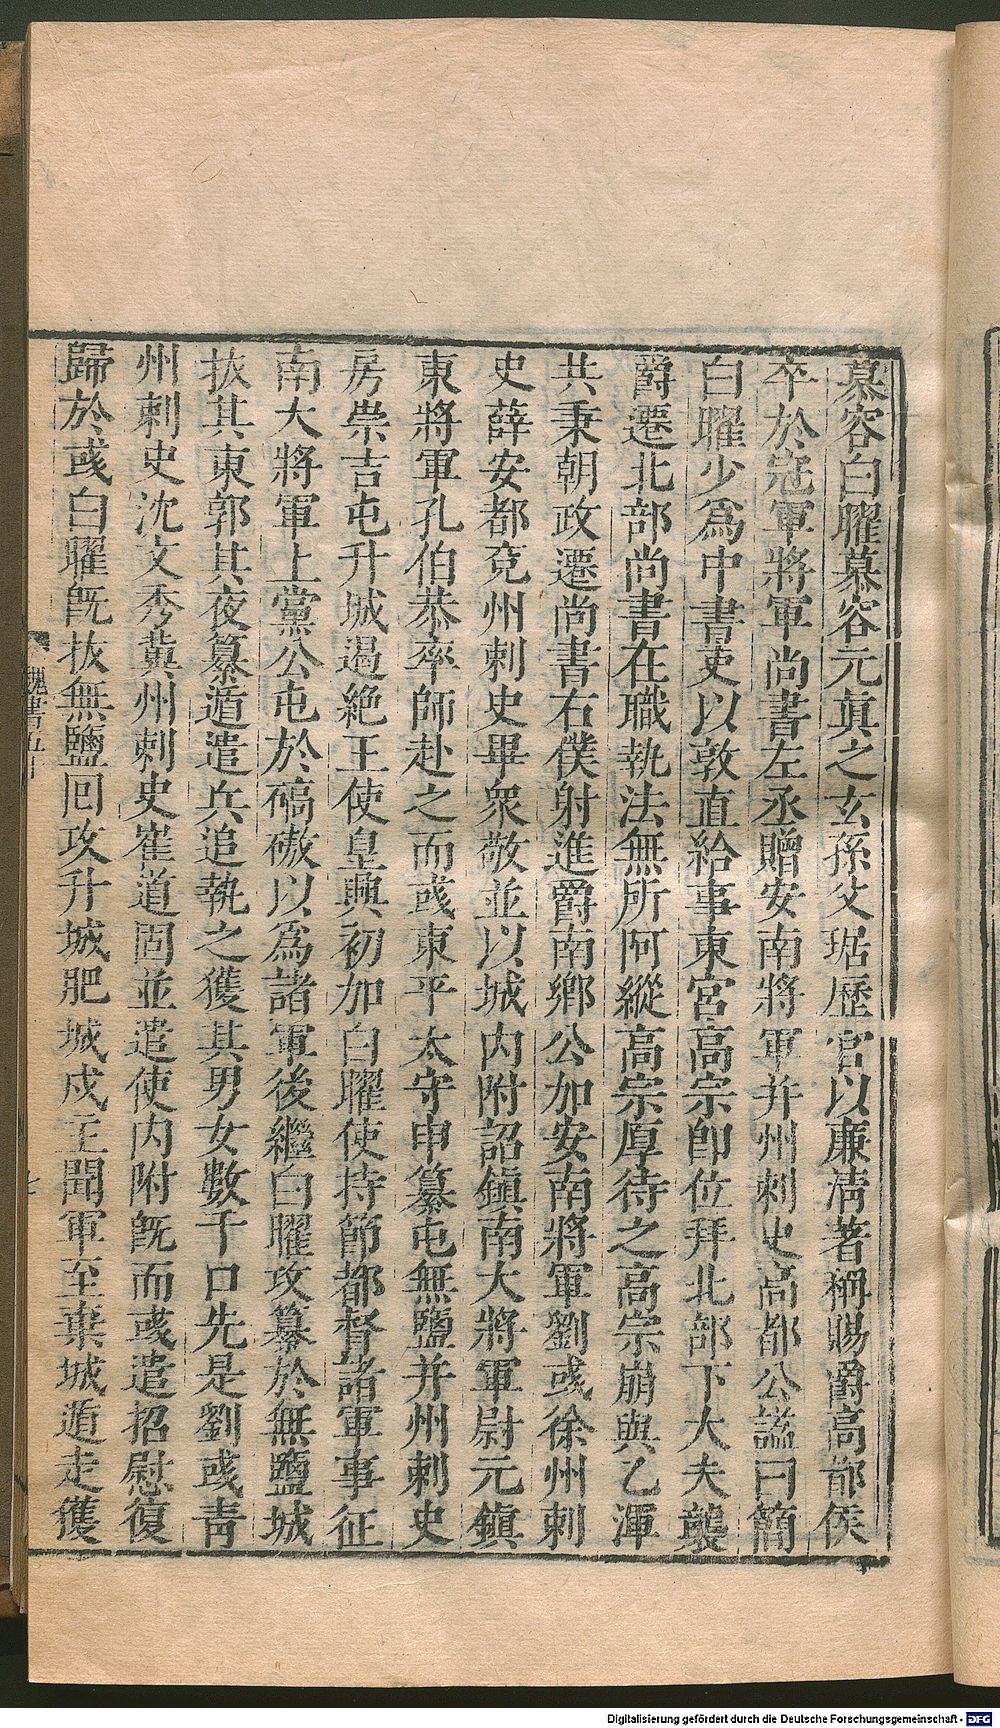 慕容白曜慕容元真之玄孫父琚歷官以廉清著稱賜爵高都侯
卒於冠軍將軍尚書左丞贈安南將軍并州刺史高都公諡曰簡
白曜少爲中書吏以敦直給事東宮高宗卽位拜北部下大夫襲
爵遷北部尚書在職執法無所阿縱高宗厚待之高宗崩與乙渾
共秉朝政遷尚書右僕射進爵南鄉公加安南將軍劉彧徐州刺
史薛安都兗州刺史畢衆敬並以城内附詔鎮南大將軍尉元鎮
東將軍孔伯恭率師赴之而彧東平太守申纂屯無鹽并州刺史
房崇吉屯升城遏絶王使皇興初加白曜使持節都督諸軍事征
南大將軍上黨公屯於碻磝以爲諸軍後繼白曜攻纂於無鹽城
拔其東郭其夜纂遁遣兵追執之獲其男女數千口先是劉彧青
州刺史沈文秀冀州刺史崔道固並遣使内附既而彧遣招慰復
歸於彧白曜既拔無鹽回攻升城肥城戍主聞軍至棄城遁走獲
魏書五十
七
Digitalisierung gefördert durch die Deutsche Forschungsgemeinschaft - DFG